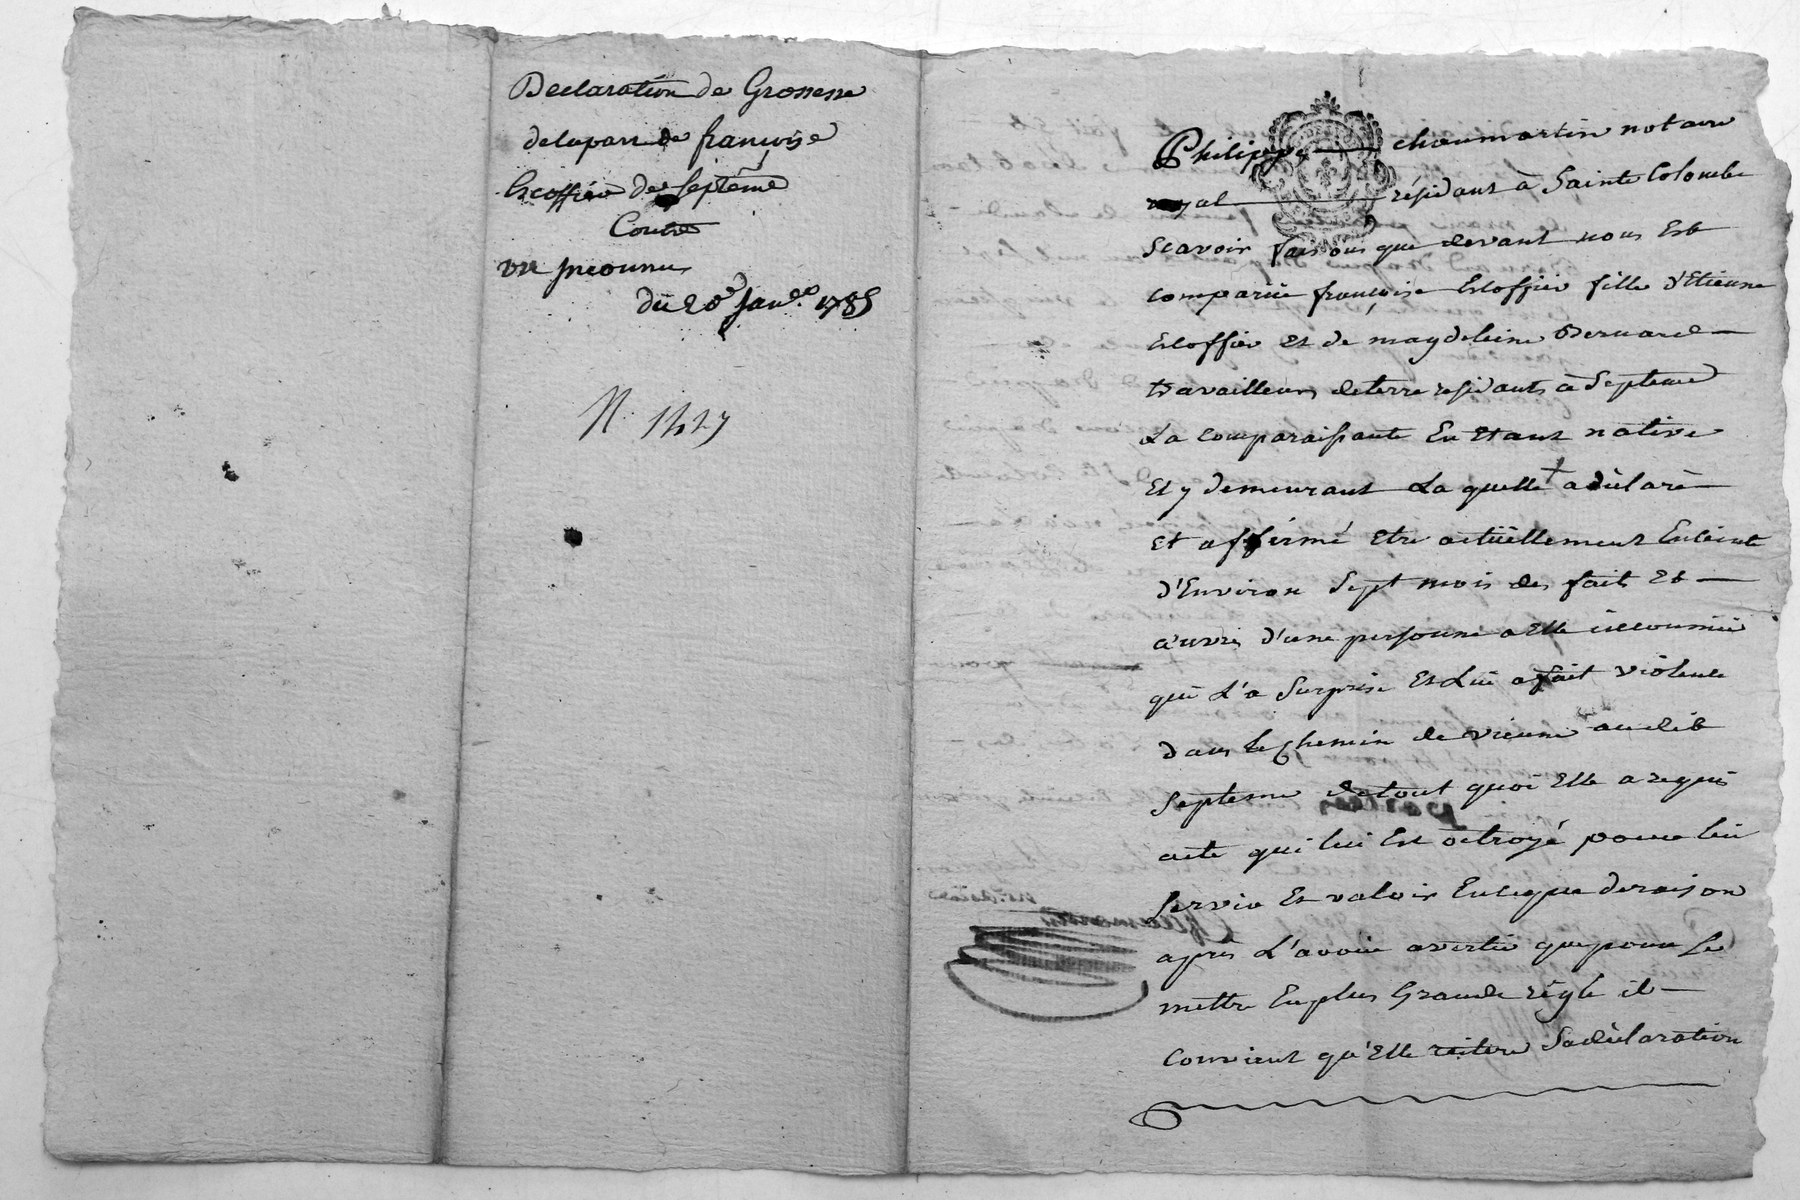 Declaration de Grossesse
delapart de françoise
Escoffier de Septême
Contre
un jnconnu
du 20e Janer. 1785
N. 1427
Philippe chaumartin notaire
royal résidant à Sainte Colombe
Scavoir faisons que devant nous Est
comparüe françoise Escoffier fille d'Etienne
Escoffier et de magdeleine Bernard
travailleurs deterre residants a Septeme
La comparaissante En Etant native
Et y demeurant La quelle a déclaré
et affirmé Etre actüellement Enceinte
d'Environ Sept mois des faits Et
œuvres d'une personne a Elle inconnüe
qui L'a Surprise Et Lui a fait violence
dans le Chemin de vienne audit
Septeme de tout quoi Elle a requis
acte qui lui Est octroyé pour lui
Servir Et valoir En ce que de raison
après L'avoir avertie que pour Se
mettre En plus Grande règle il
convient qu'Elle reitere Sa déclaration